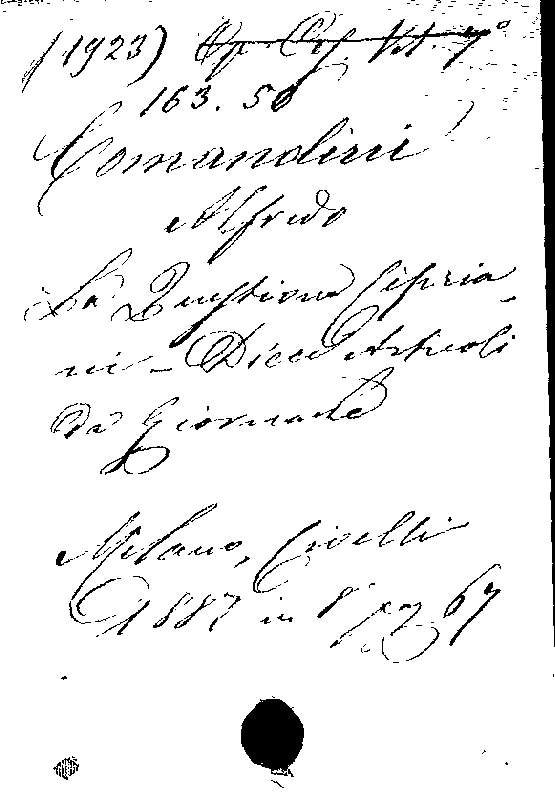 (1923) Op. Cif. Vol. 7°
163. 50
Comandini
Alfredo
La Questione Cipria-
ni - Dieci Articoli
da Giornale
Milano, Civelli
1887 in 8° pag 67